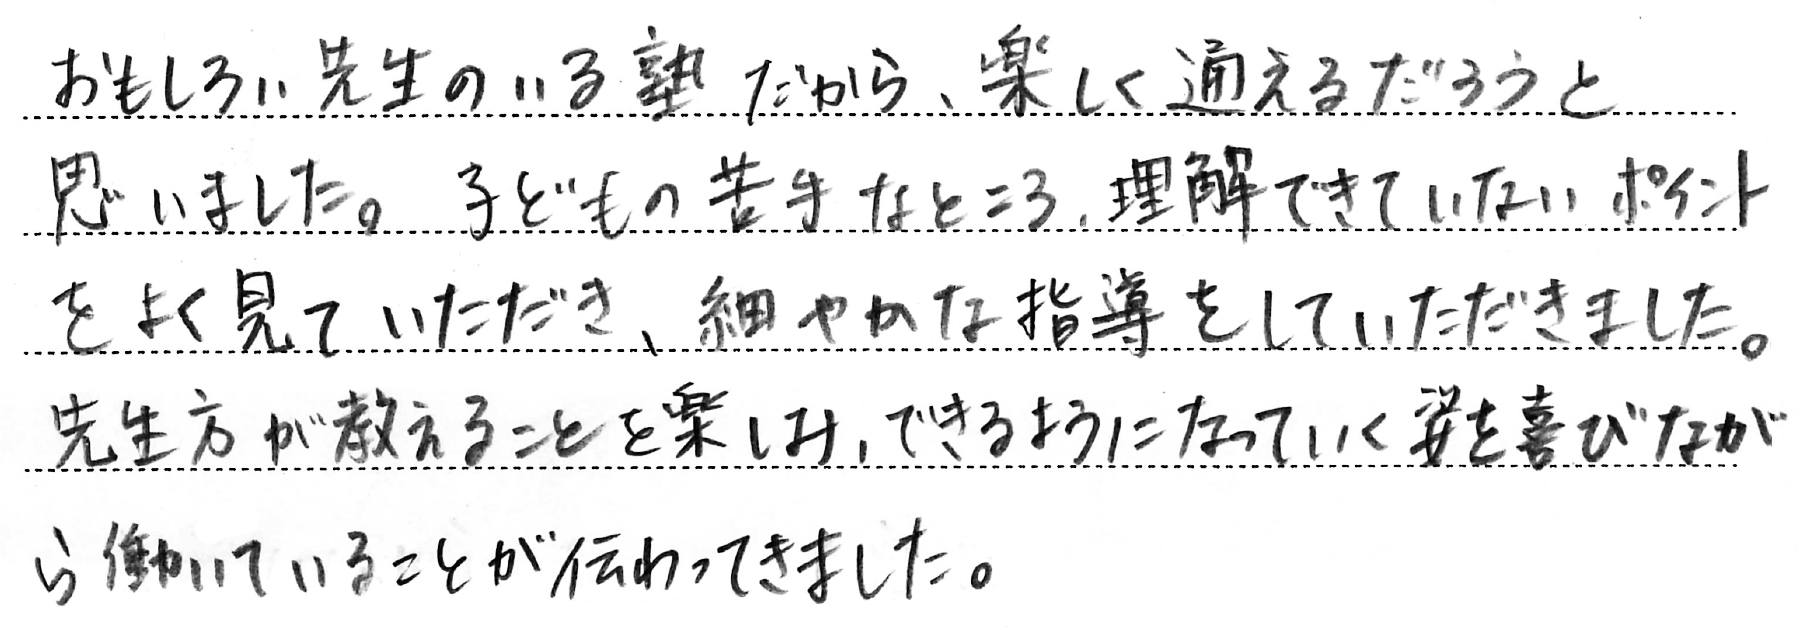 おもしろい先生のいる塾だから、楽しく通えるだろうと
思いました。子どもの苦手なところ、理解できていないポイント
をよく見ていただき、細やかな指導をしていただきました。
先生方が教えることを楽しみ、できるようになっていく姿を喜びなが
ら働いていることが伝わってきました。